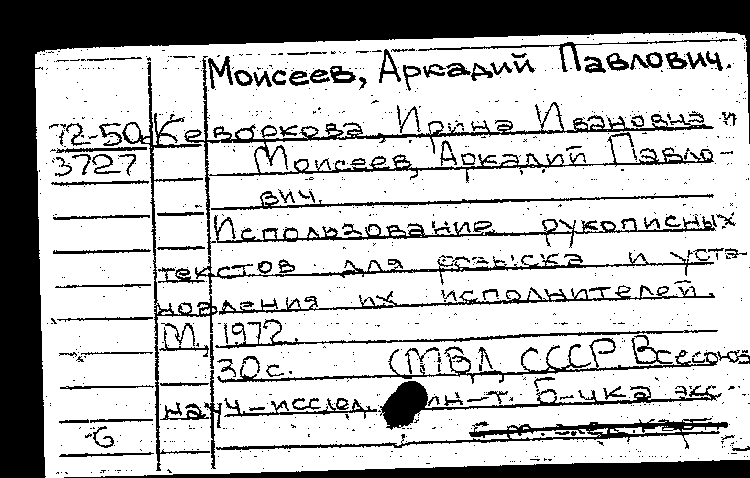 Моисеев, Аркадий Павлович.
72-50- Кеворкова, Ирина Ивановна и
3727 Моисеев, Аркадий Павло-
вич.
Использование рукописных
текстов для розыска и уста-
новления их исполнителей.
М., 1972.
30с. (МВД СССР. Всесоюз
науч-исслед. ин-т. Б-чка экс-
6 См. след. кар